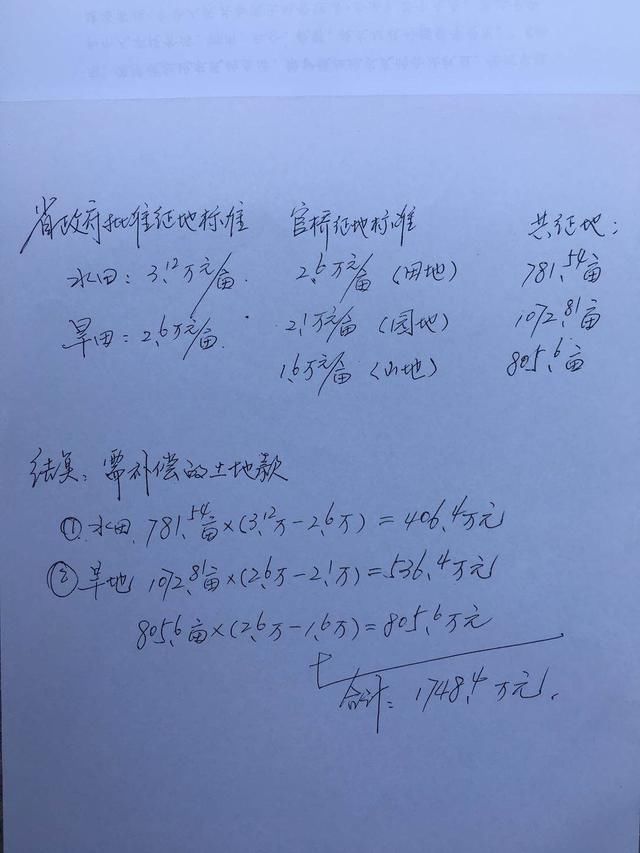 省政府批准征地标准 官桥征地标准 共征地:
水田: 3.12万元/亩. 2.6万元/亩 (田地) 781.54亩
旱田: 2.6万元/亩. 2.1万元/亩 (园地) 1072.81亩
1.6万元/亩 (山地) 805.6亩
结果: 需补偿的土地款
① 水田. 781.54亩×(3.12万-2.6万) = 406.4万元
② 旱地 1072.81亩×(2.6万-2.1万)=536.4万元
805.6亩×(2.6万-1.6万)=805.6万元
+
合计: 1748.4万元.